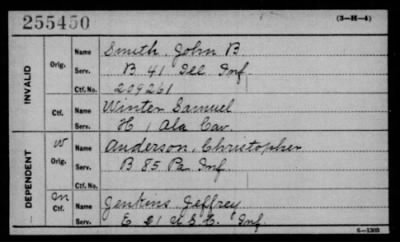 255450 (3-H-4)
INVALID
Orig. Name Smith, John B
Serv. B 41 Ill Inf
Ctf. No. 209261
Ctf. Name Winter Samuel
Serv. H 1 Ala Cav
DEPENDENT
W Orig. Name Anderson, Christopher
Serv. B 85 Pa Inf
Ctf. No.
Ctf. Name Jenkins Jeffrey
Serv. E 21 U.S.C. Inf